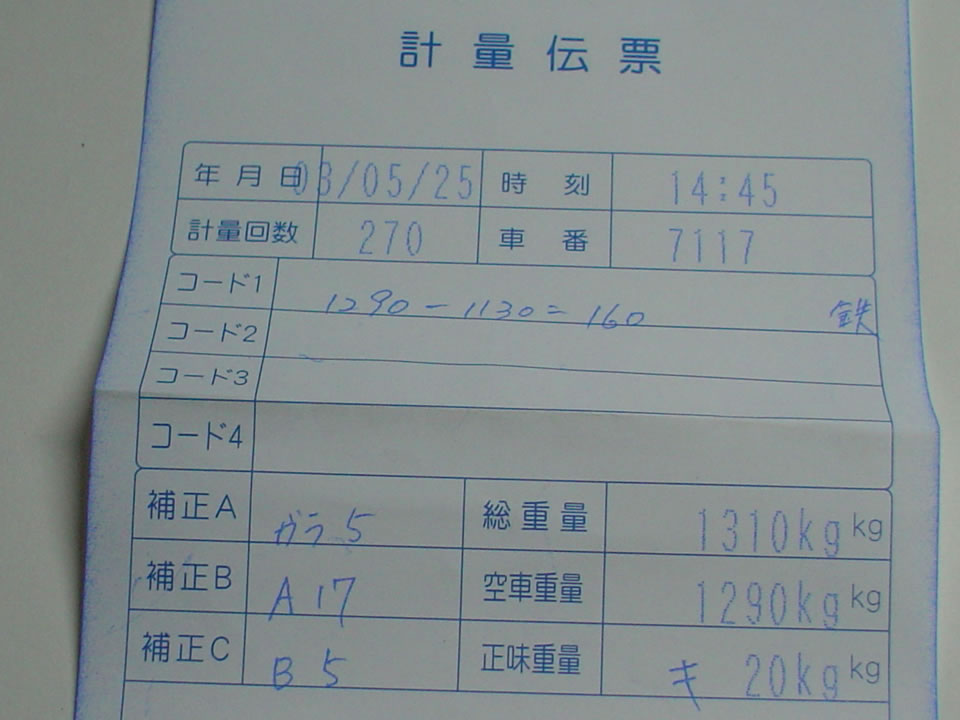 計量伝票
年月日 03/05/25 時刻 14:45
計量回数 270 車番 7117
コード1 1290-1130=160 鉄
コード2
コード3
コード4
補正A ガラ5 総重量 1310kg kg
補正B A 17 空車重量 1290kg kg
補正C B 5 正味重量 キ 20kg kg